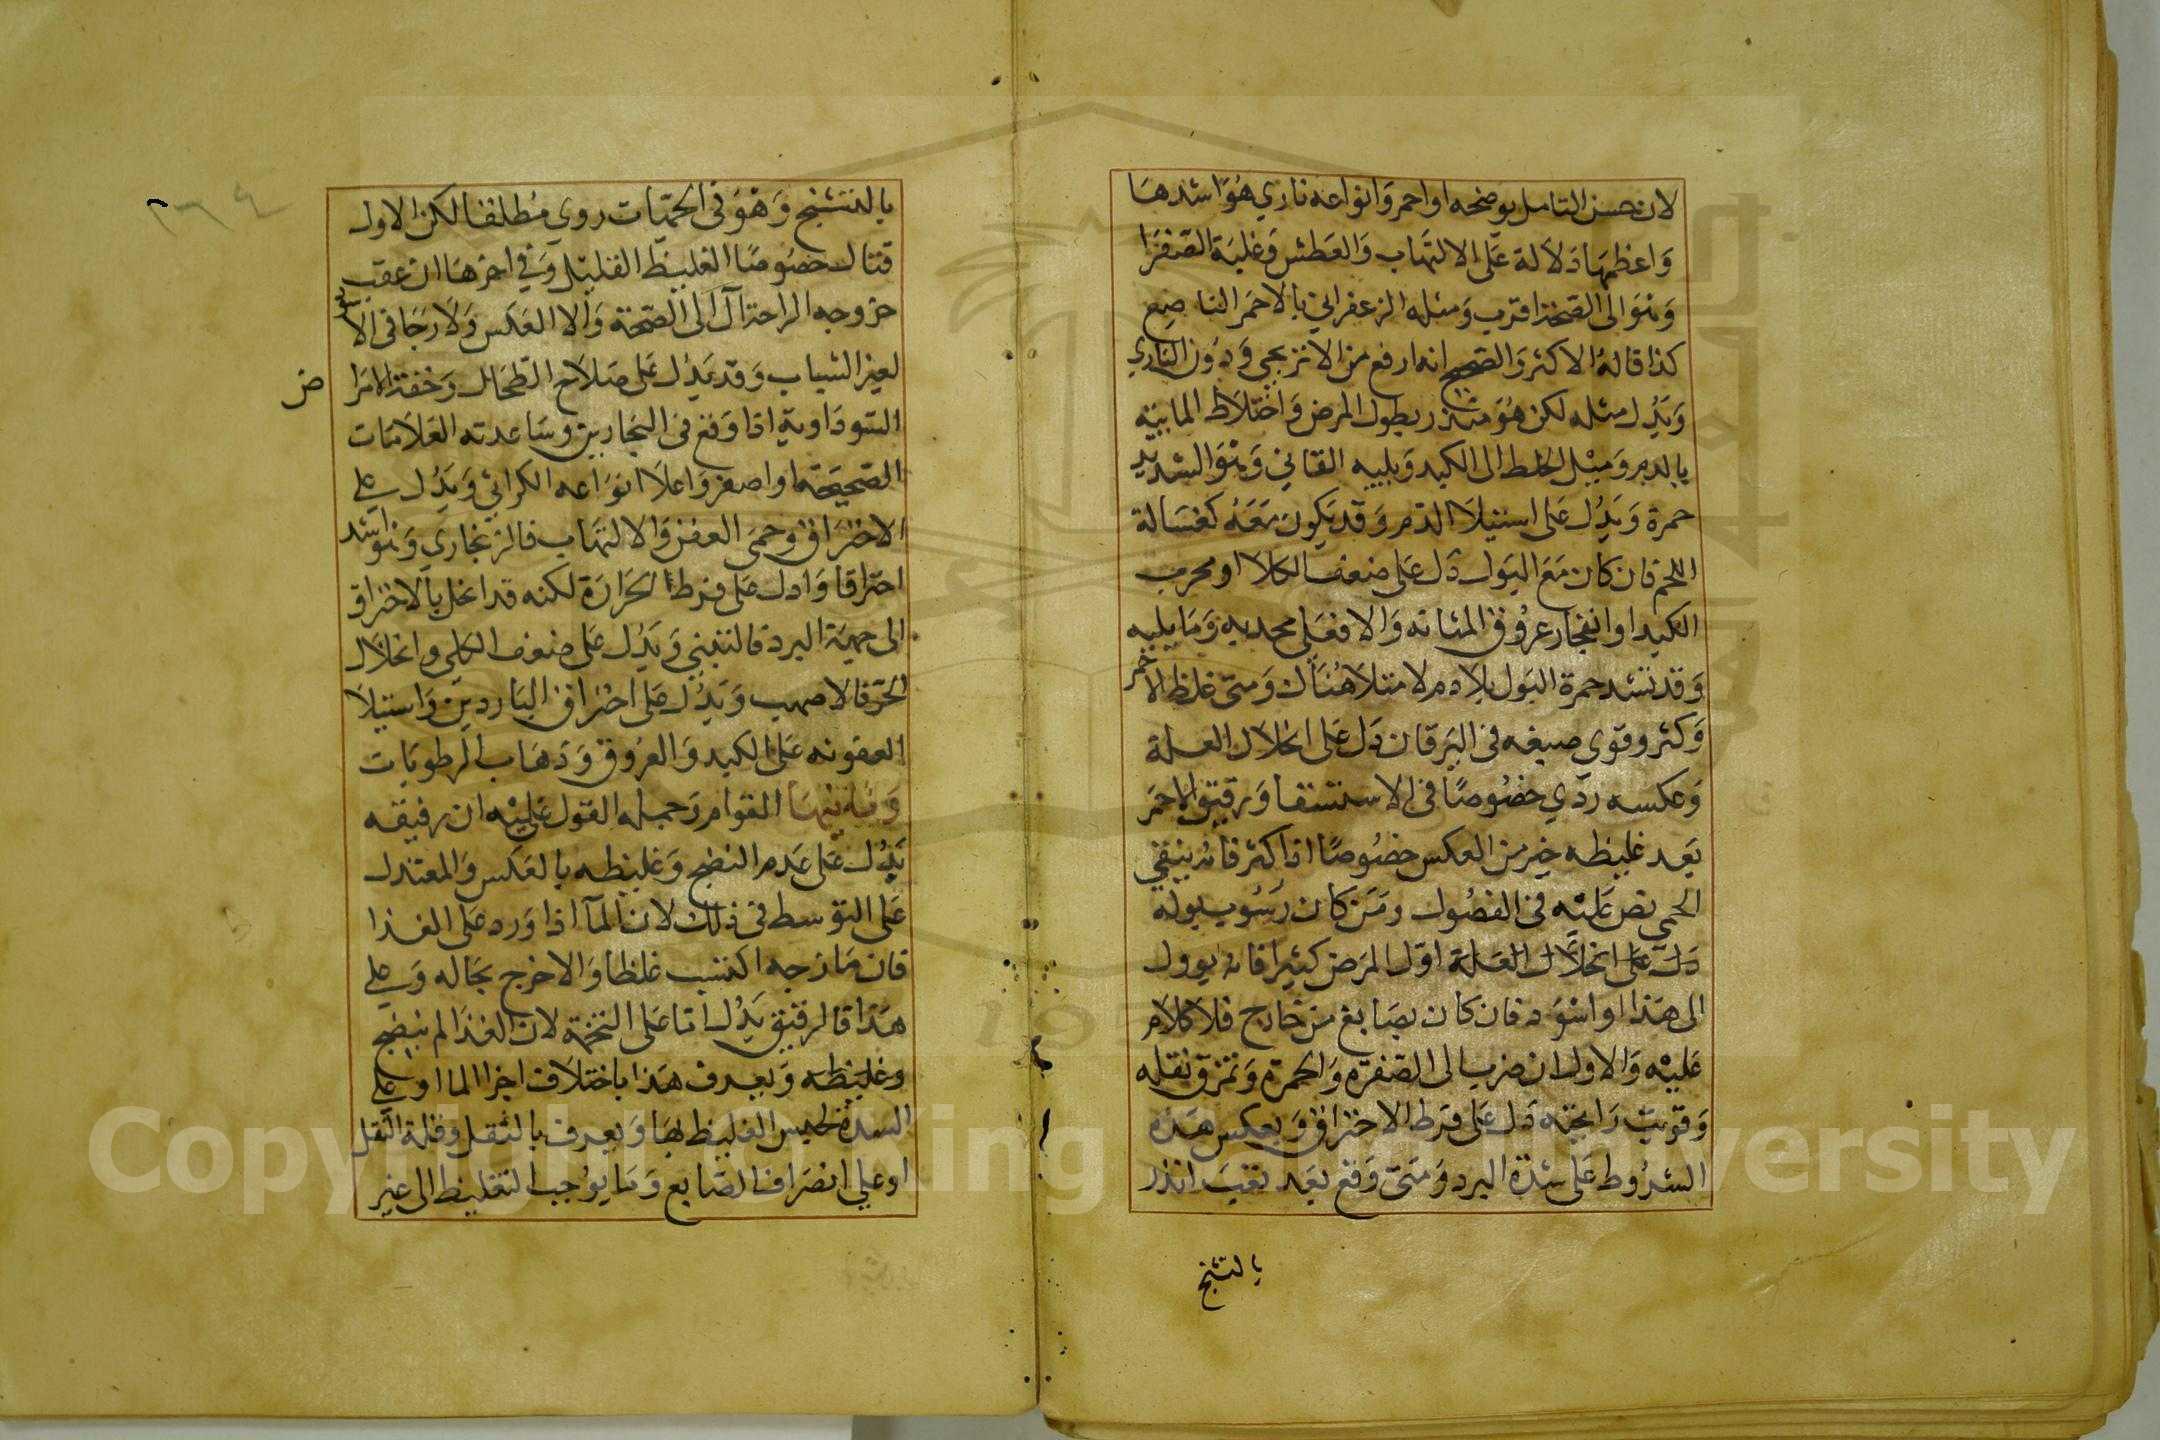 لان حسن التامل يوضحه او احمر وانواعه ناري هو اشدها
واعظمها دلالة على الالتهاب والعطش وغلبة الصفرا
وهو الى الصحة اقرب ومثله الزعفراني بالاحمر الناصع
كذا قاله الاكثر والصحيح انه ارفع من الاترجي ودون الناري
ويدل مثله لكن هو منذر بطول المرض واختلاط المابيه
بالدم وميل الخلط الى الكبد ويليه القاني وهو الشديد
حمرة ويدل على استيلا الدم وقد يكون معه كغسالة
اللحم فان كان مع البول دل على ضعف الكلا او محدب
الكبد او انفجار عروق المثانه والا فعلى محدبه وما يليه
وقد تشتد حمرة البول بلا دم لامتلا هناك ومتى غلظ الاحمر
وكثر وقوي صبغه في اليرقان دل على انحلال العلة
وعكسه ردي خصوصا في الاستسقا ورقيق الاحمر
بعد غليظه خير من العكس خصوصا اذا كثر فانه ينقي
الحمى نص عليه في الفصول ومن كان رسوب بوله
دل على انحلال العلة اول المرض كثيرا فانه يوول
الى هذا او اسود فان كان بصابغ من خارج فلا كلام
عليه والاول ان ضرب الى الصفرة والحمرة وتمزق نقله
وقويت رايحته دل على فرط الاحتراق وبعكس هذه
الشروط على شدة البرد ومتى وقع بعد تعب انذر
بالتشنج
بالتشنج وهو في الحميات ردي مطلقا لكن الاول
قتال خصوصا الغليظ القليل وفي اخرها ان عقب
خروجه الراحة آل الى الصحة والا العكس ولا رجا في الاسود
لغير الشباب وقد يدل على صلاح الطحال وخفة الامرا
ض
السوداوية اذا وقع في البحارين وساعدته العلامات
الصحيحة او اصفر واعلا انواعه الكراثي ويدل على
الاحتراق وحمى العفن والالتهاب فالزنجاري وهو اشد
احتراقا وادل على فرط الحرارة لكنه قد انحل بالاحتراق
الى جهة البرد فالتبني ويدل على ضعف الكلي وانحلال
الحر فالاصهب ويدل على احتراق الباردين واستيلا
العفونه على الكبد والعروق وذهاب الرطوبات
وثانيها القوام وجمله القول عليه ان رقيقه
يدل على عدم النضج وغليظه بالعكس والمعتدل
على التوسط في ذلك لان المآ اذا ورد على الغذا
فان مازجه اكتسب غلظا والا خرج بحاله وعلى
هذا فالرقيق يدل اما على التخمة لان الغذا لم ينضج
وغليظه ويعرف هذا باختلاف اجزا الما او على
السدة لحبس الغليظ بها ويعرف بالثقل وقلة الثقل
او على انصراف الصابغ وما يوجب التغليظ الى غير
Copyright © King Saud University